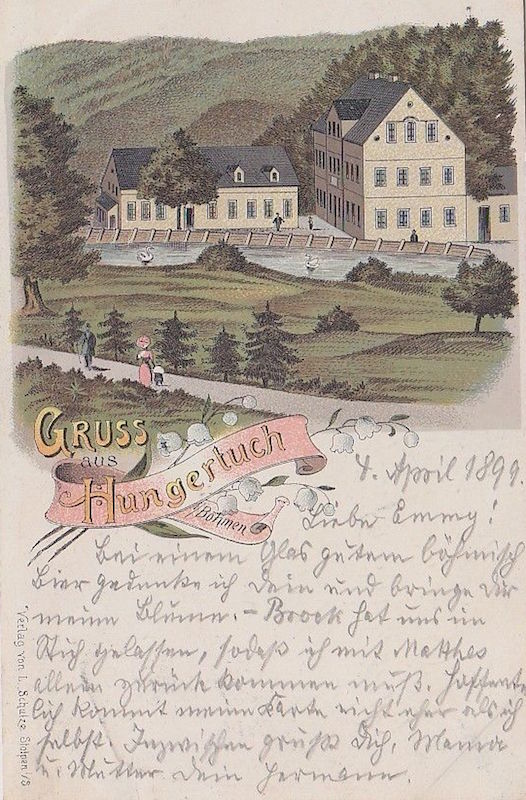 GRUSS
aus
Hungertuch
/Böhmen
4. April 1899.
Liebe Emmy!
Bei einem Glas gutem böhmisch
Bier gedenke ich Dein und bringe Dir
meine Blume. – Brock hat uns im
Stich gelassen, sodaß ich mit Matthes
allein zurück kommen muß. Hoffent-
lich kommt meine Karte nicht eher als ich
selbst. Inzwischen grüßt Dich, Mama
u. Mutter Dein Hermann.
Verlag von L. Schulze Stolpen i/S